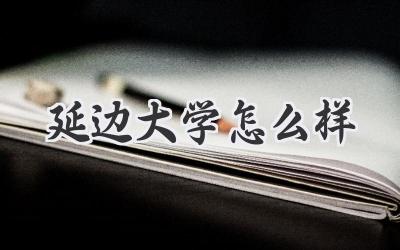 延边大学怎么样